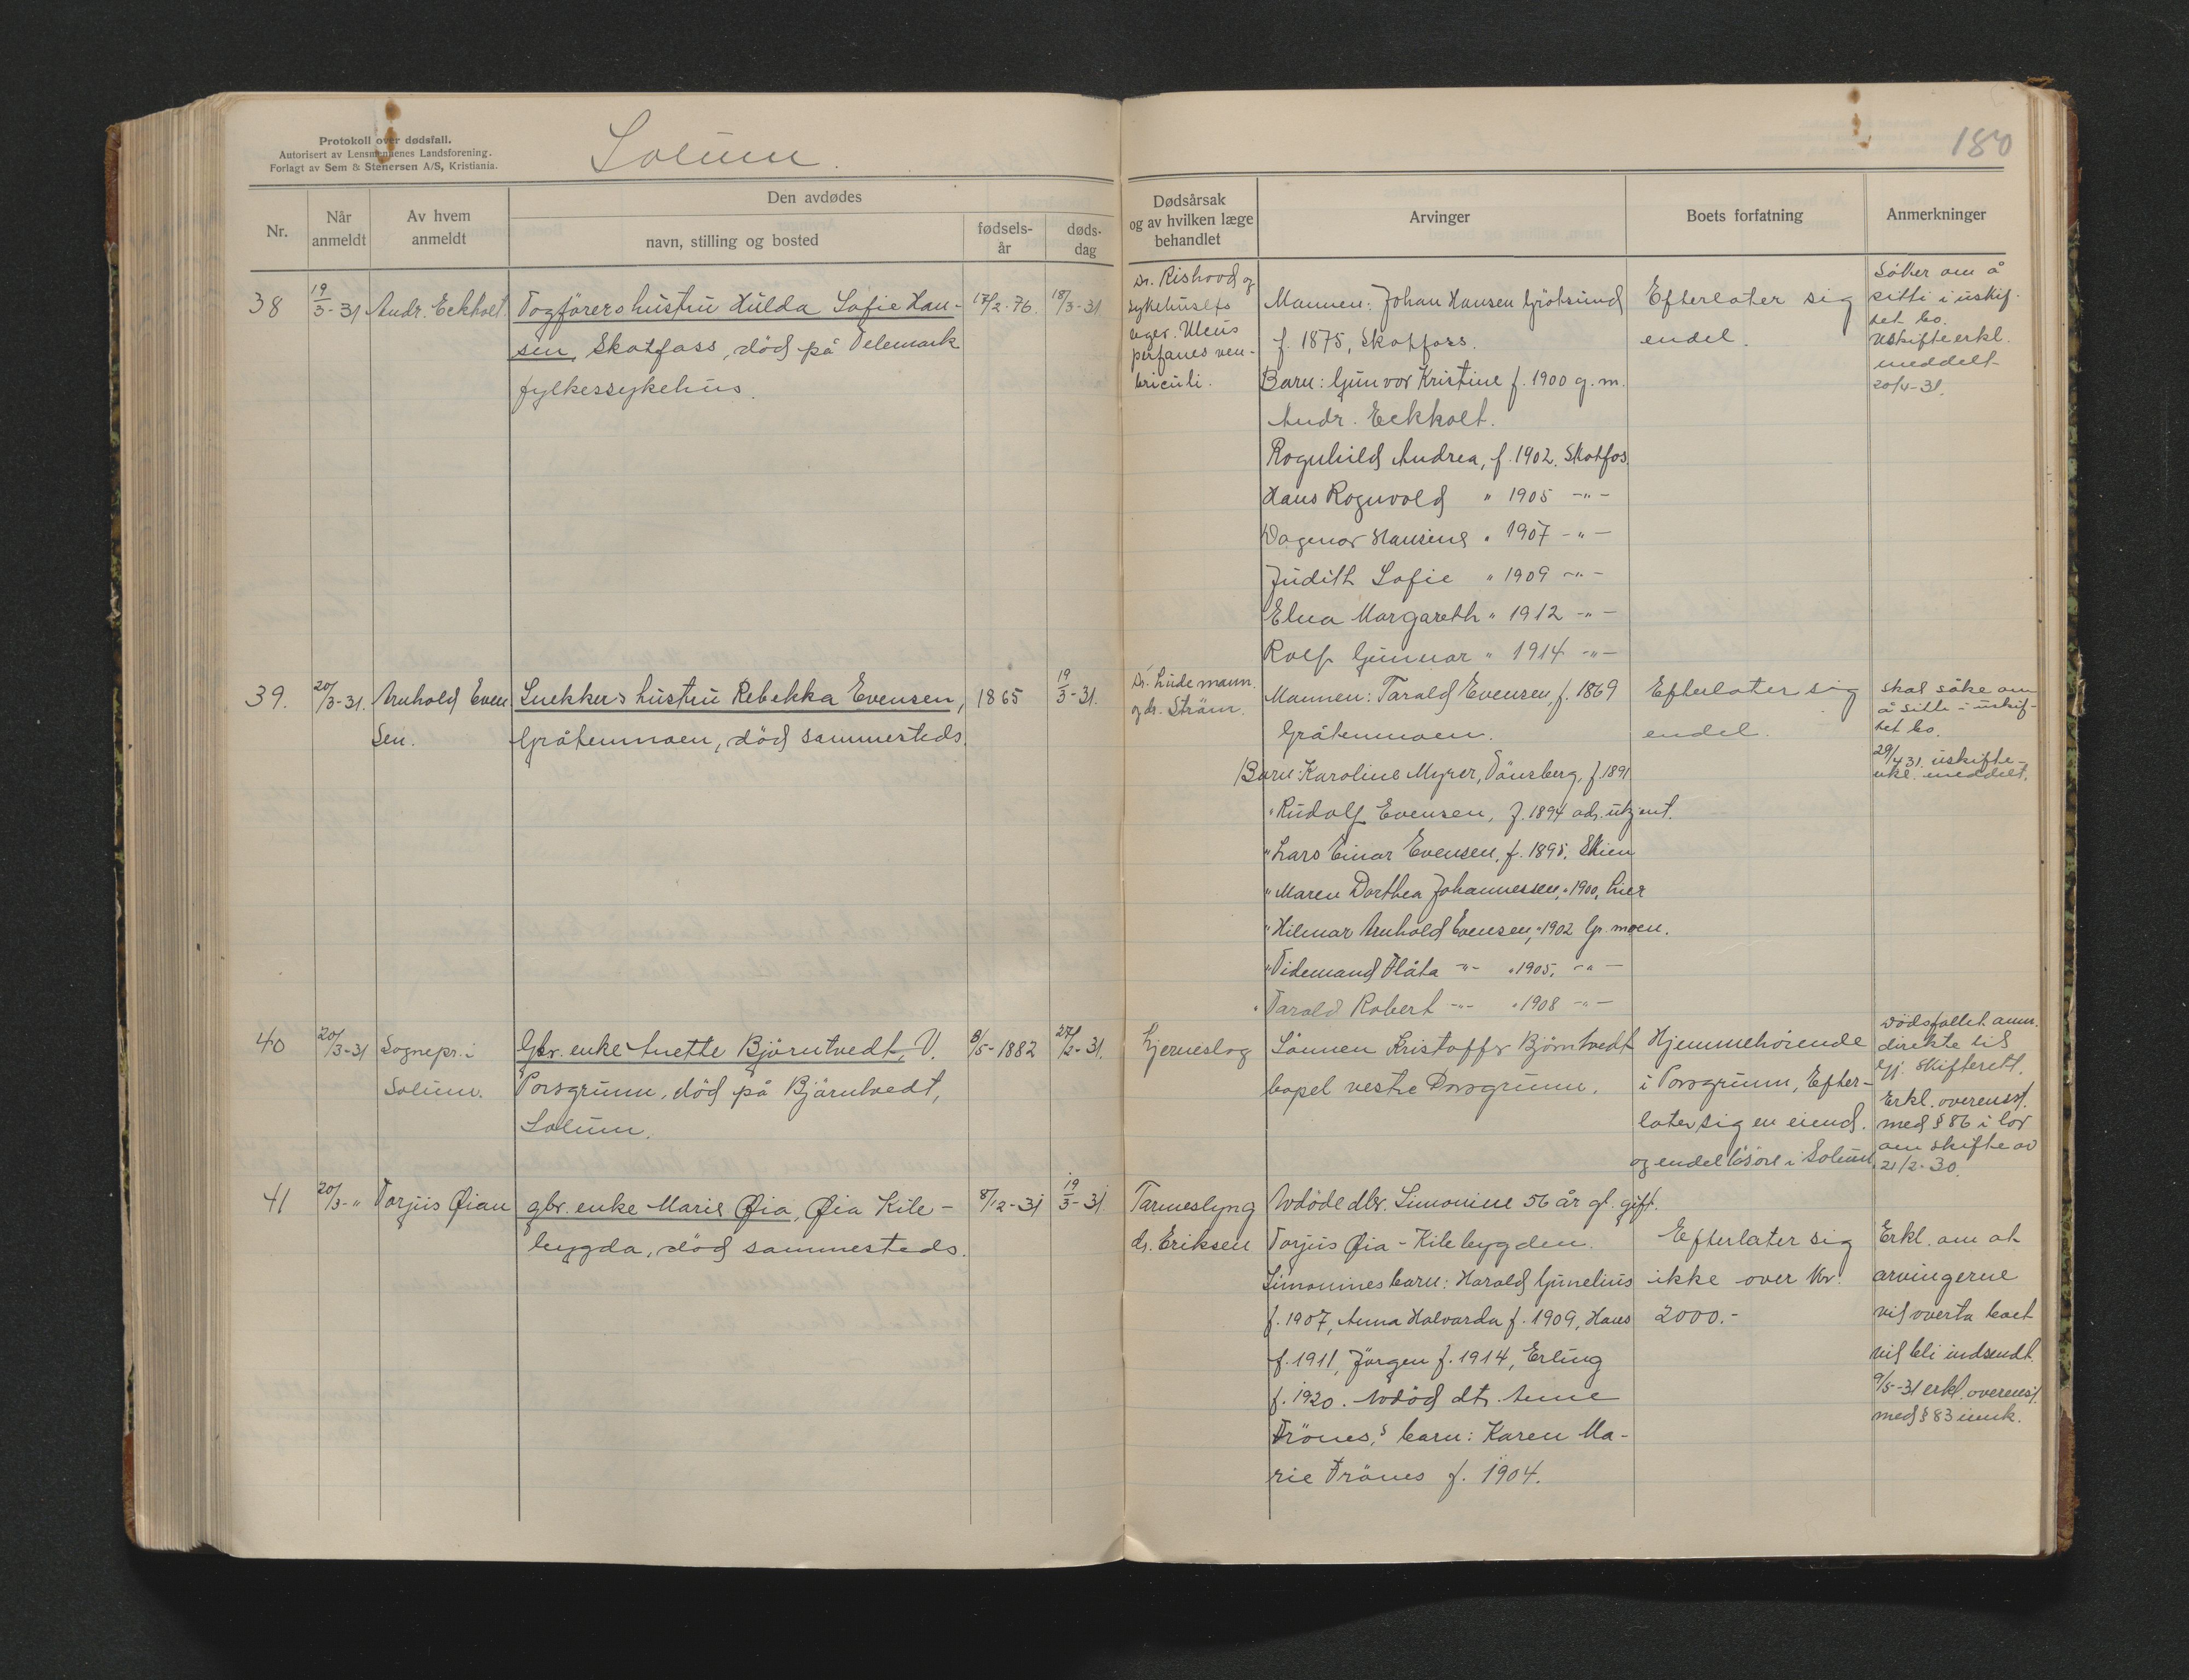 Protokoll over dødsfall.
Autorisert av Lensmennenes Landsforening.
Forlagt av Sem & Stenersen A/S, Kristiania.
Solum.
180
Nr.
Når anmeldt
Av hvem anmeldt
Den avdødes
navn, stilling og bosted
fødsels-år
døds-dag
Dødsårsak og av hvilken læge behandlet
Arvinger
Boets forfatning
Anmerkninger
38
19/3-31
Andr. Eckholt.
Togförers hustru Hulda Sofie Han-
sen, Skotfoss, död på Telemark
fylkessykehus.
17/2-76.
18/3-31
Dr. Rishovd og
sykehusets
leger. Ulcus
perfanes ven-
triculi.
Mannen: Johan Hansen Grötsund
f. 1875, Skotfoss.
Barn: Gunvor Kristine f. 1900 g. m.
Andr. Eckholt.
Ragnhild Andrea, f. 1902. Skotfos.
Hans Ragnvald " 1905 -"-
Dagmar Hansine " 1907 -"-
Judith Sofie " 1909 -"-
Elna Margareth " 1912 -"-
Rolf Gunnar " 1914 -"-
Efterlater sig
endel.
Söker om å
sitti i uskif-
tet bo.
Uskifteerkl.
meddelt
20/4-31.
39.
20/3-31.
Arnhold Even
sen.
Snekkers hustru Rebekka Evensen,
Gråtenmoen, död sammesteds.
1865
19/3-31.
Dr. Ludemann.
og dr. Ström.
Mannen: Tarald Evensen, f. 1869
Gråtenmoen.
Barn: Karoline Myrer, Tönsberg, f. 1891
" Rudolf Evensen, f. 1894 adr. utkjent.
" Lars Einar Evensen, f. 1895, Skien
" Maren Dorthea Johannessen, " 1900, her
" Hilmar Arnhold Evensen, " 1902 Gr. moen.
" Tidemand Flåta -"- " 1905, -"-
" Tarald Robert -"- " 1908 -"-
Efterlater sig
endel.
skal söke om
å sitte i uskif-
tet bo.
29/4 31. uskifte-
erkl. meddelt.
40
20/3-31
Sognepr. i
Solum.
Gbr. enke Anette Björntvedt, V.
Porsgrunn, död på Björntvedt,
Solum.
8/5-1882
27/2-31.
Hjerneslag
Sönnen Kristoffer Björntvedt
bopel vestre Porsgrunn.
Hjemmehörende
i Porsgrunn, Efter-
later sig en eiend.
og endel lösöre i Solum.
Dödsfallet anm.
direkte til
Gj. skifterett.
Erkl. overensst.
med § 86 i lov
om skifte av
21/2-30.
41
20/3-"
Torjus Øian
gbr. enke Marie Øia, Øia Kile-
bygda, död sammesteds.
8/12-31
19/3-31
Tarmeslyng
dr. Eriksen
Avdöde dtr. Simonine 56 år gl. gift.
Torjus Øia - Kilebygden.
Simonines barn: Harald Gunelius
f. 1907, Anna Halvarda f. 1909, Hans
f. 1911, Jörgen f. 1914, Erling
f. 1920. Avdöd dtr. Anne
Trönes,s barn: Karen Ma-
rie Trönes f. 1904.
Efterlater sig
ikke over kr.
2000.-
Erkl. om at
arvingerne
vil overta boet
vil bli indsendt.
9/5-31 erkl. overenst.
med § 83 innk.